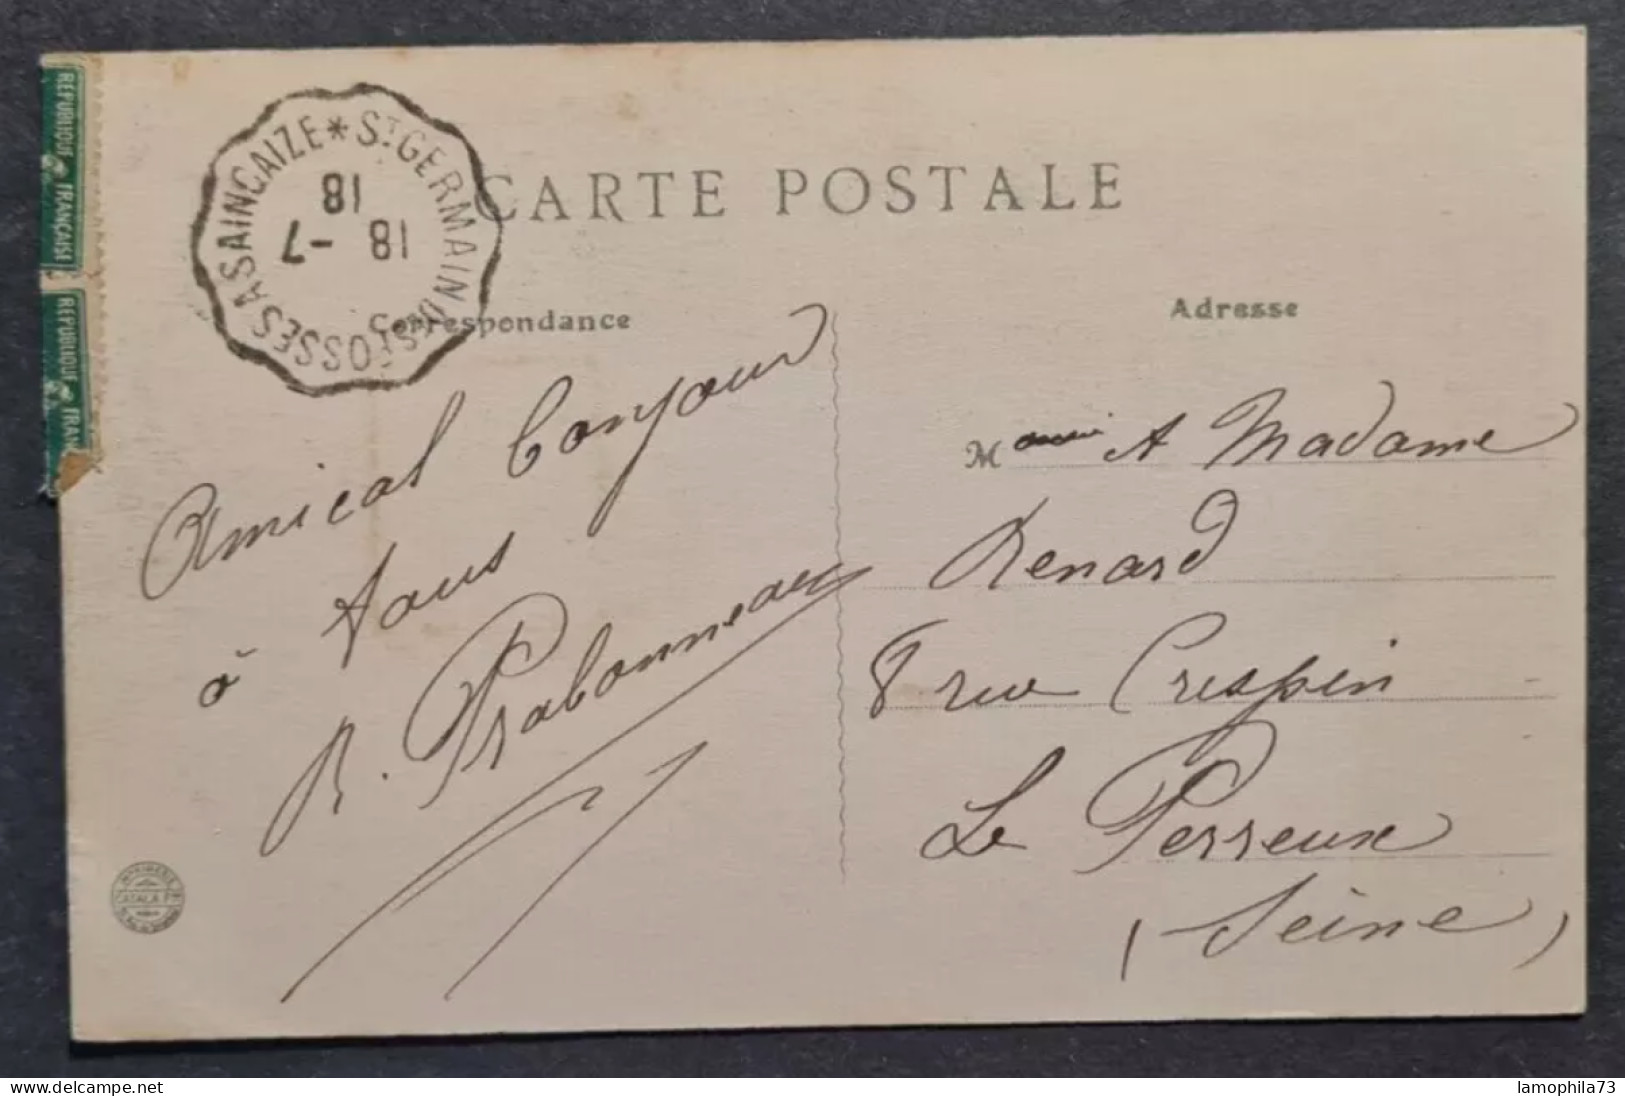 REPUBLIQUE FRANÇAISE
REPUBLIQUE FRAN
ST GERMAIN DES FOSSES A SAINCAIZE *
18
18 -7
CARTE POSTALE
Correspondance
Adresse
Amical bonjour
à tous
R. Prabonneau
M A Madame
Renard
8 rue Crespin
Le Perreux
(Seine)
CATALA
www.delcampe.net
lamophila73